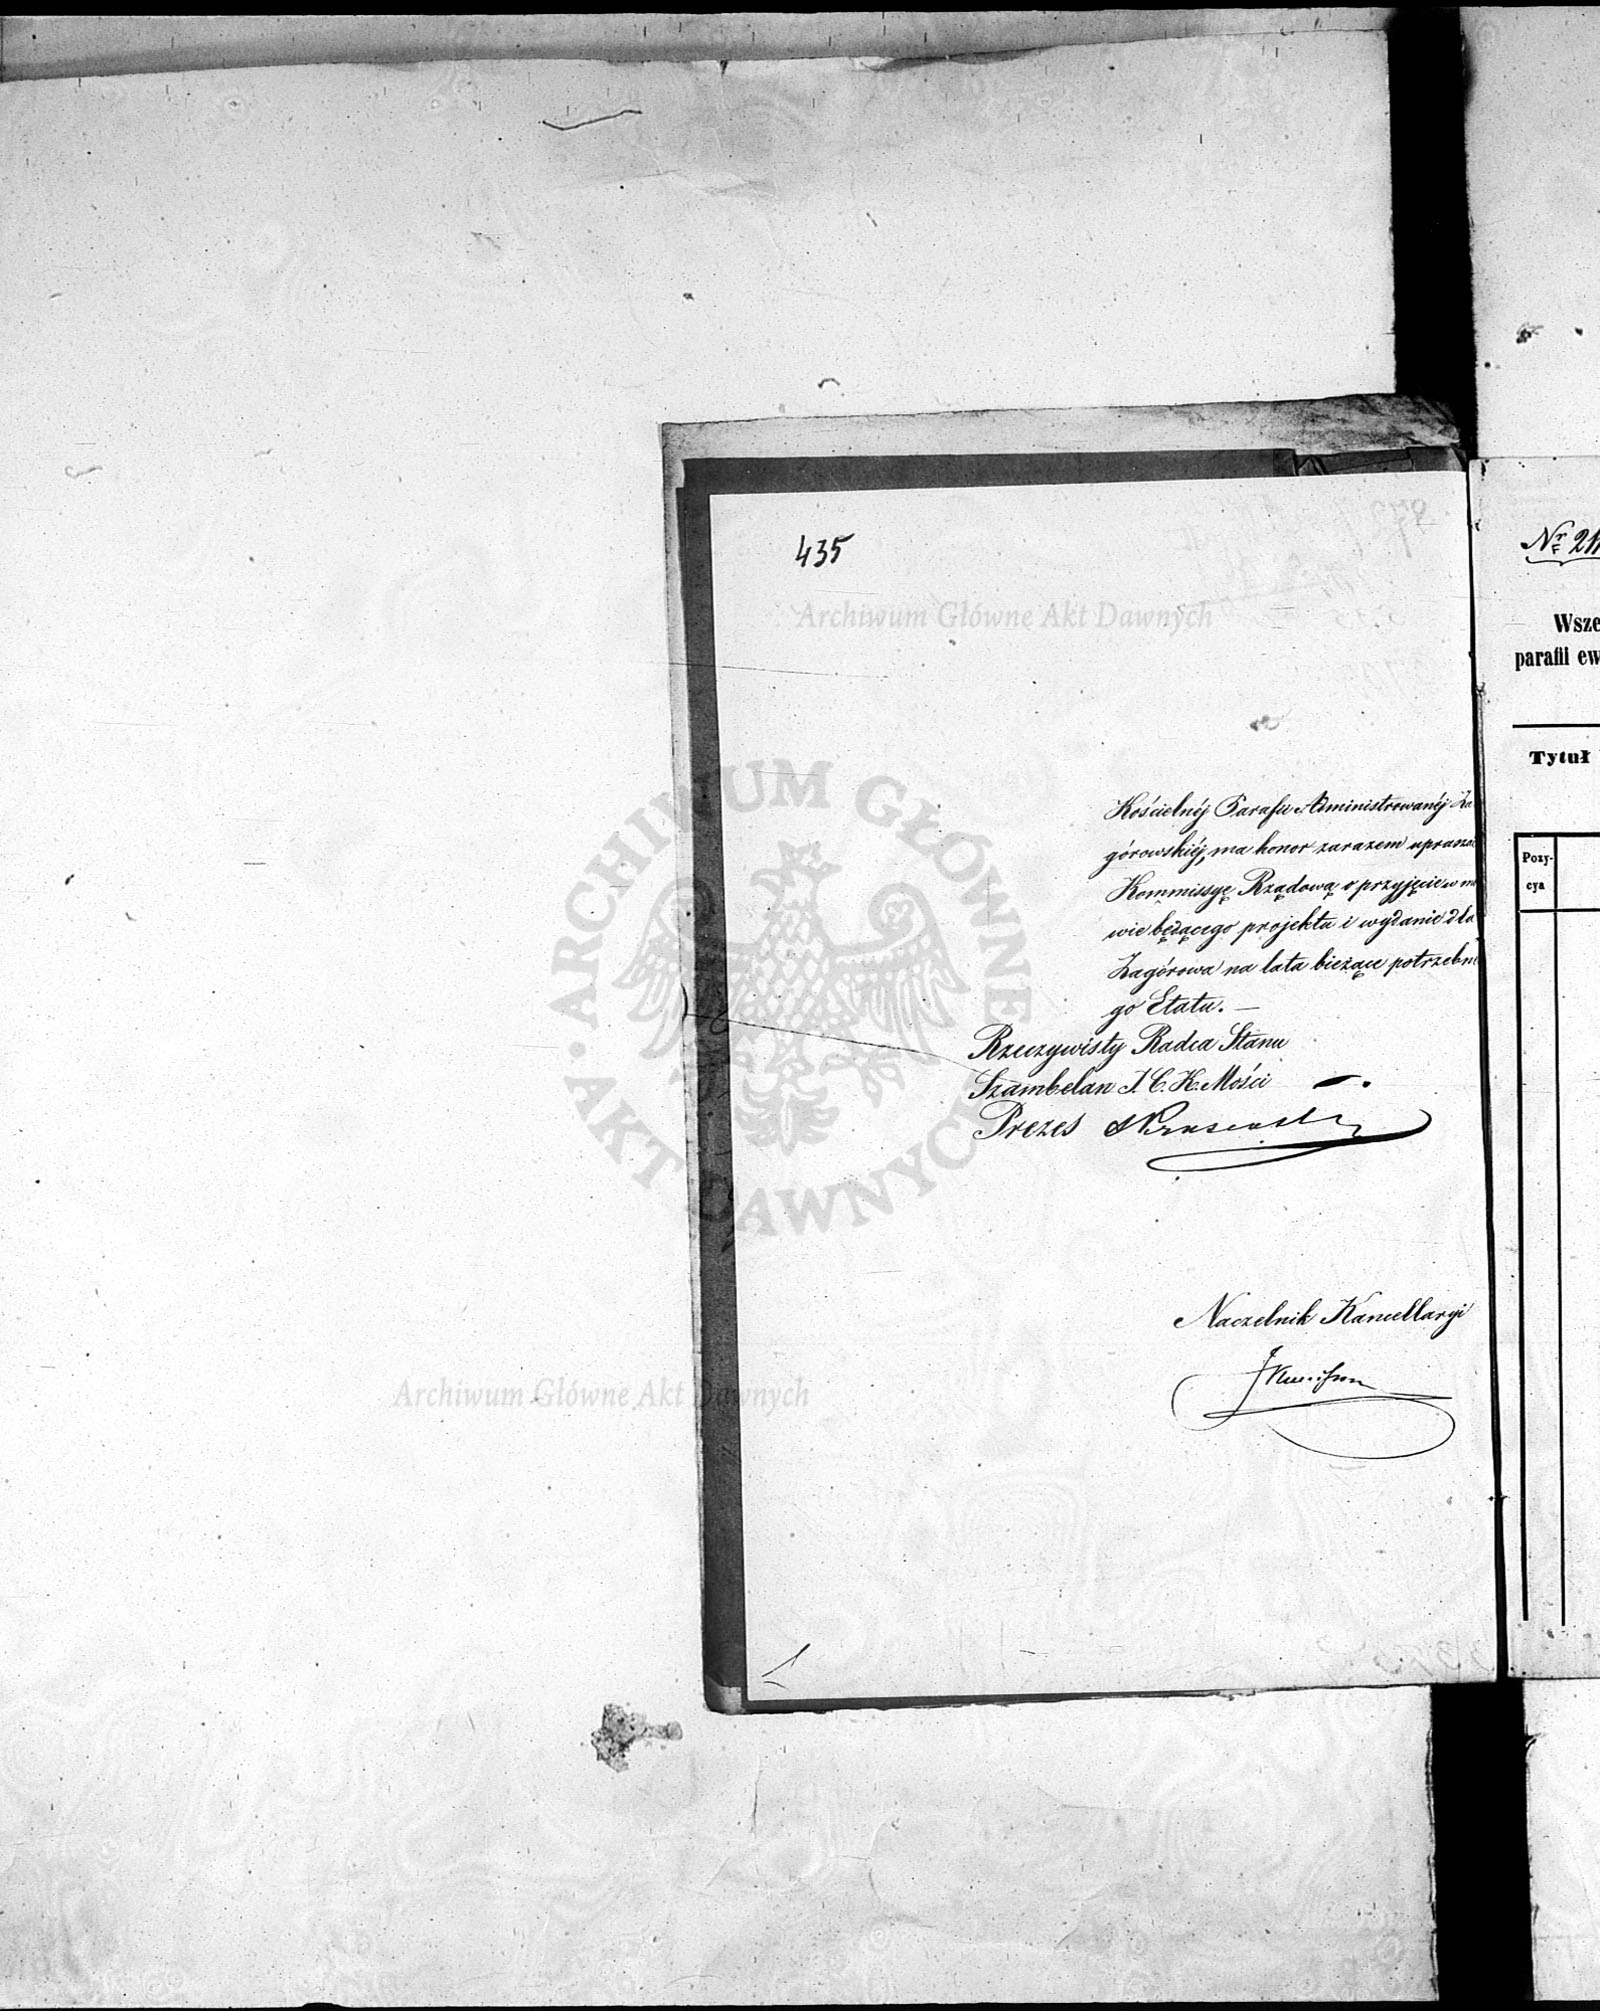 435
Archiwum Główne Akt Dawnych
Kościelnéj Parafii Administrowanéj Za
górowskiéj, ma honor zarazem upraszać
Kommissyę Rządową o przyjęcie w mo
wie będącego projektu i wydanie dla
Zagórowa na lata bieżące potrzebne
go Etatu. —
Rzeczywisty Radca Stanu
Szambelan J. C. K. Mości
Prezes
Naczelnik Kancellaryi
ARCHIWUM GŁÓWNE
AKT DAWNYCH
Archiwum Główne Akt Dawnych
Nr 21
Wsze
parafii ew
Tytuł
Pozy-
cya